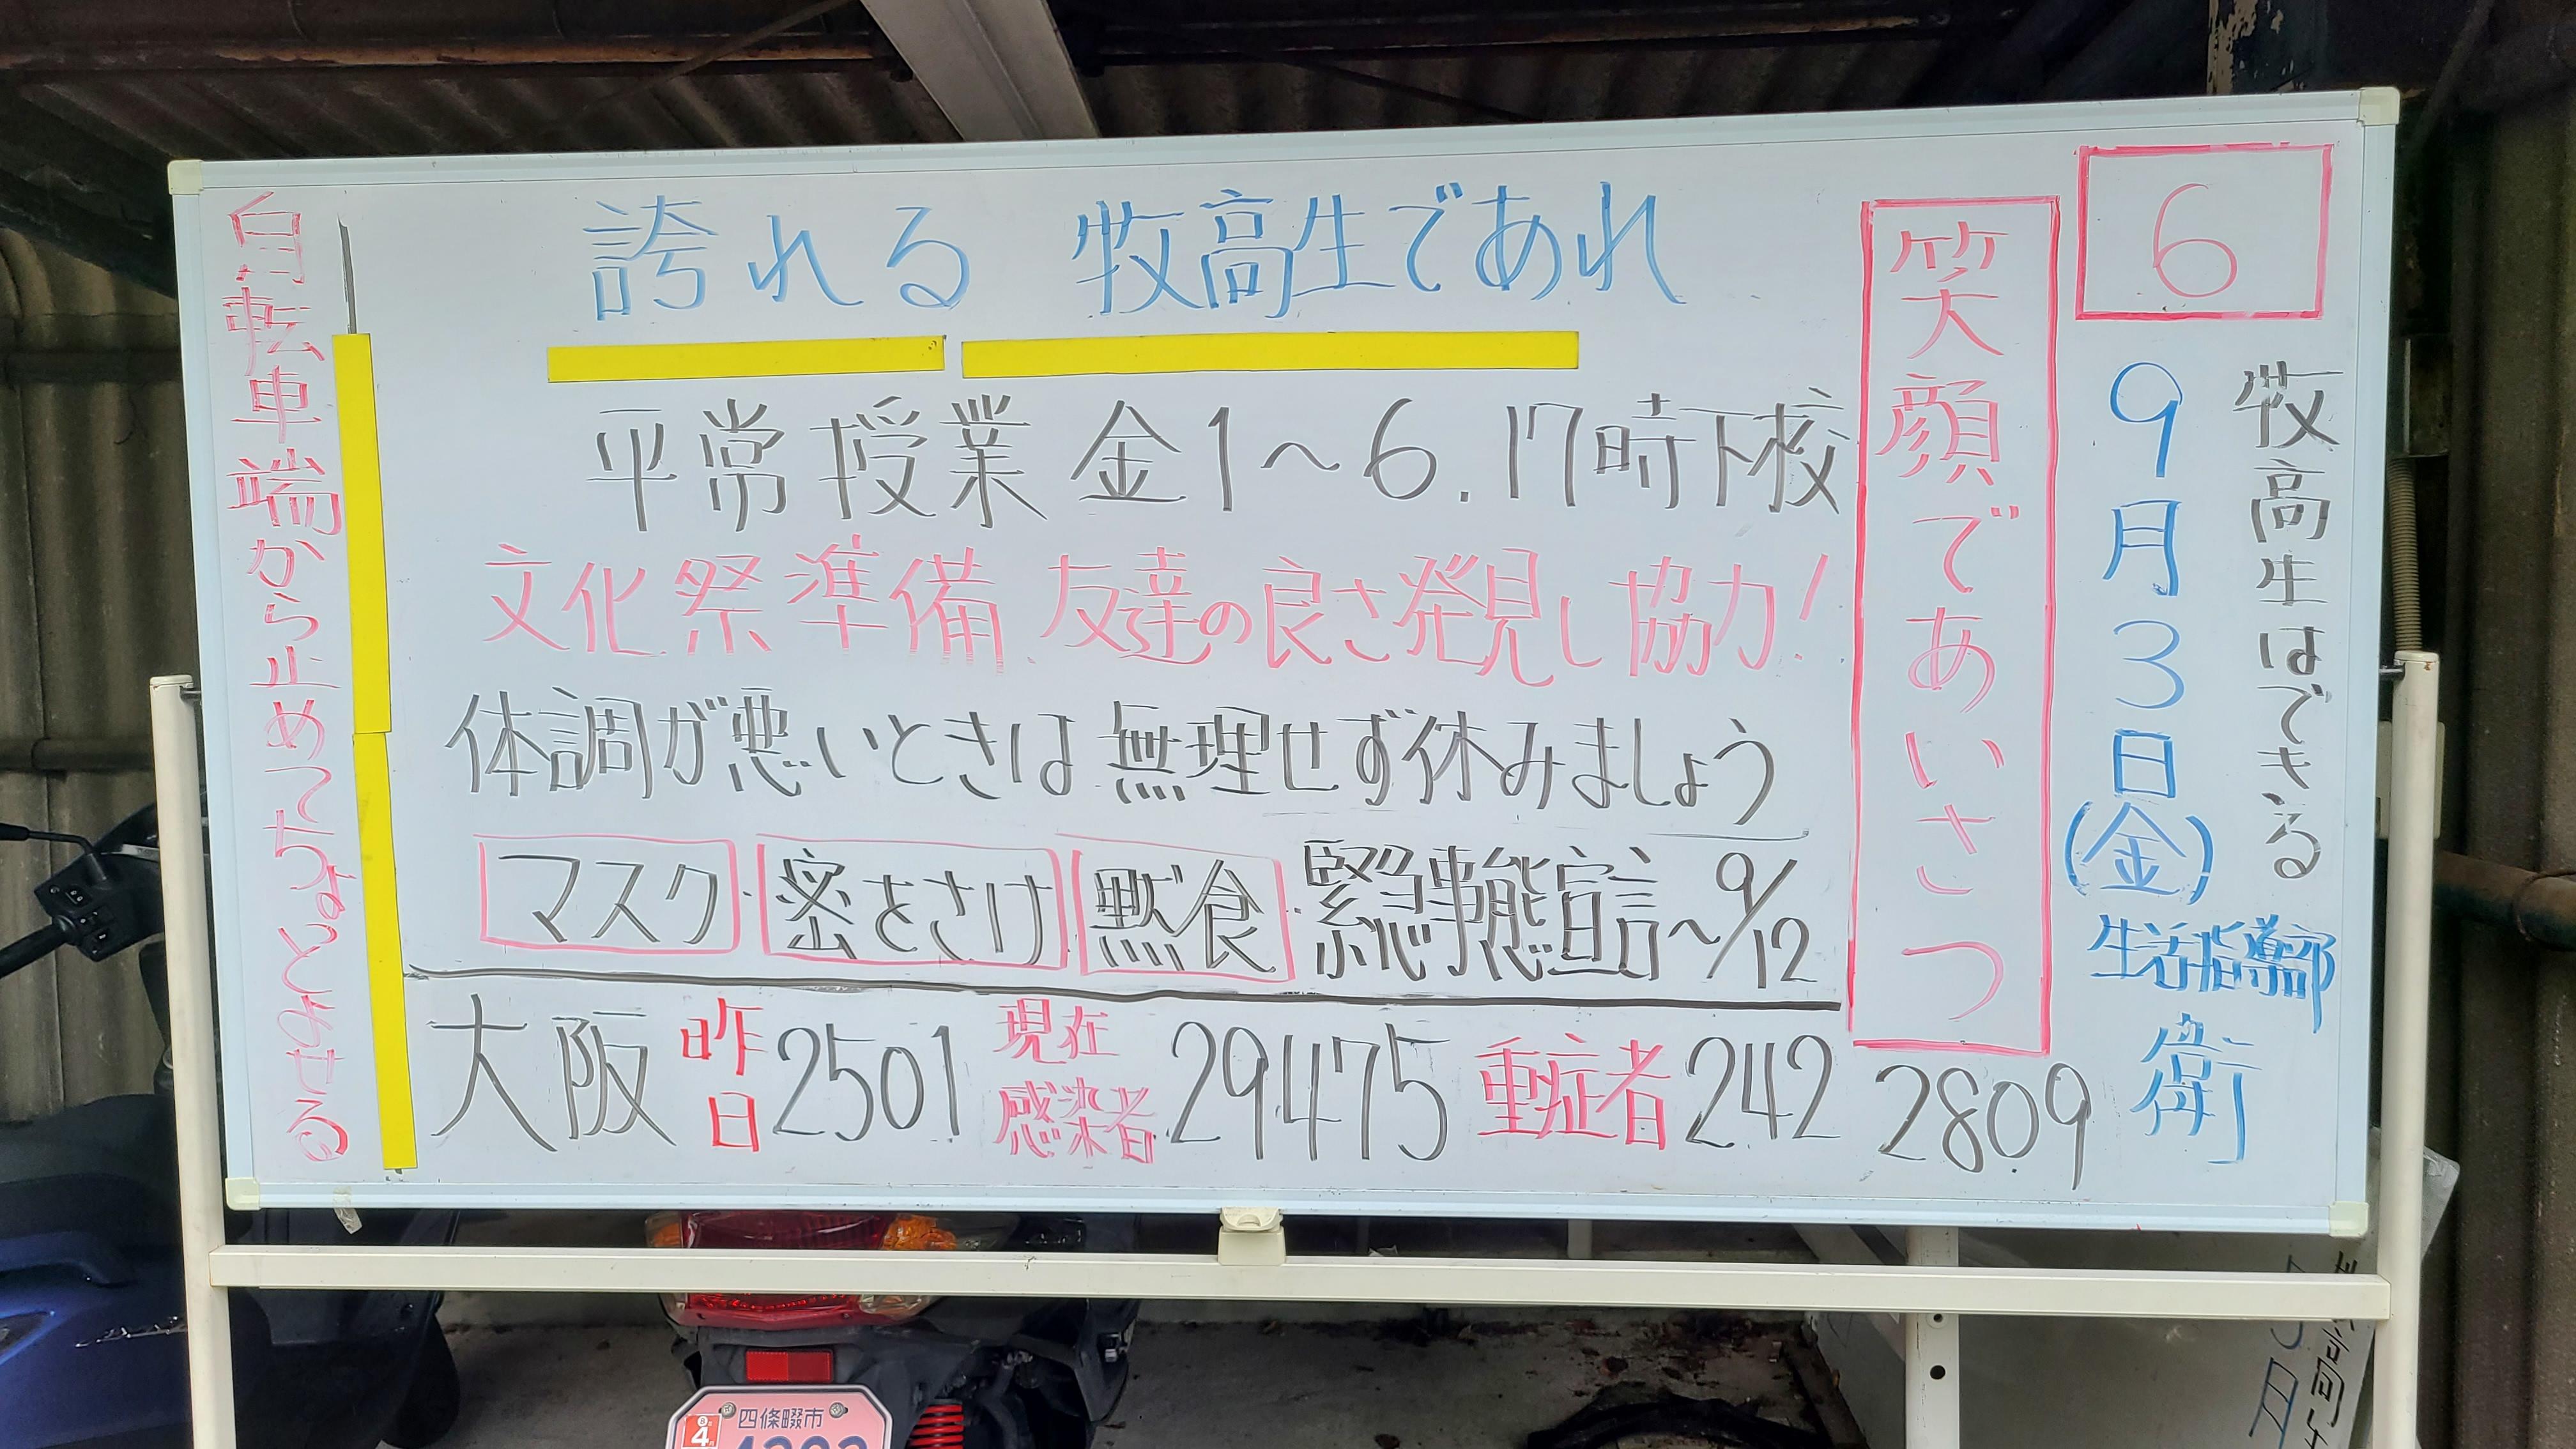 6
牧高生はできる
9月3日(金)
生活指導部
衛
笑顔であいさつ
誇れる 牧高生であれ
平常授業 金1〜6.17時下校
文化祭準備 友達の良さ発見し協力!
体調が悪いときは無理せず休みましょう
マスク 密をさけ 黙食 緊急事態宣言〜9/12
大阪 昨日2501 現在感染者29475 重症者242 2809
自転車端から止めてちょとみせる
四條畷市
4